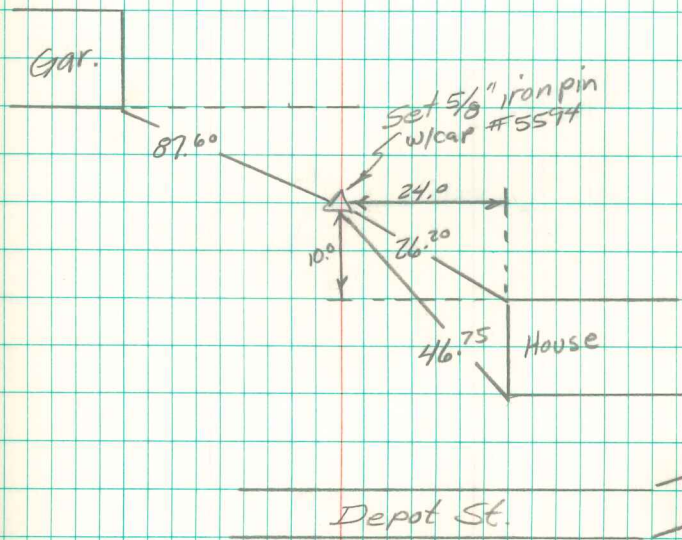 Gar.
Set 5/8" iron pin
w/cap #5594
87.60
24.0
10.0
26.20
46.75
House
Depot St.